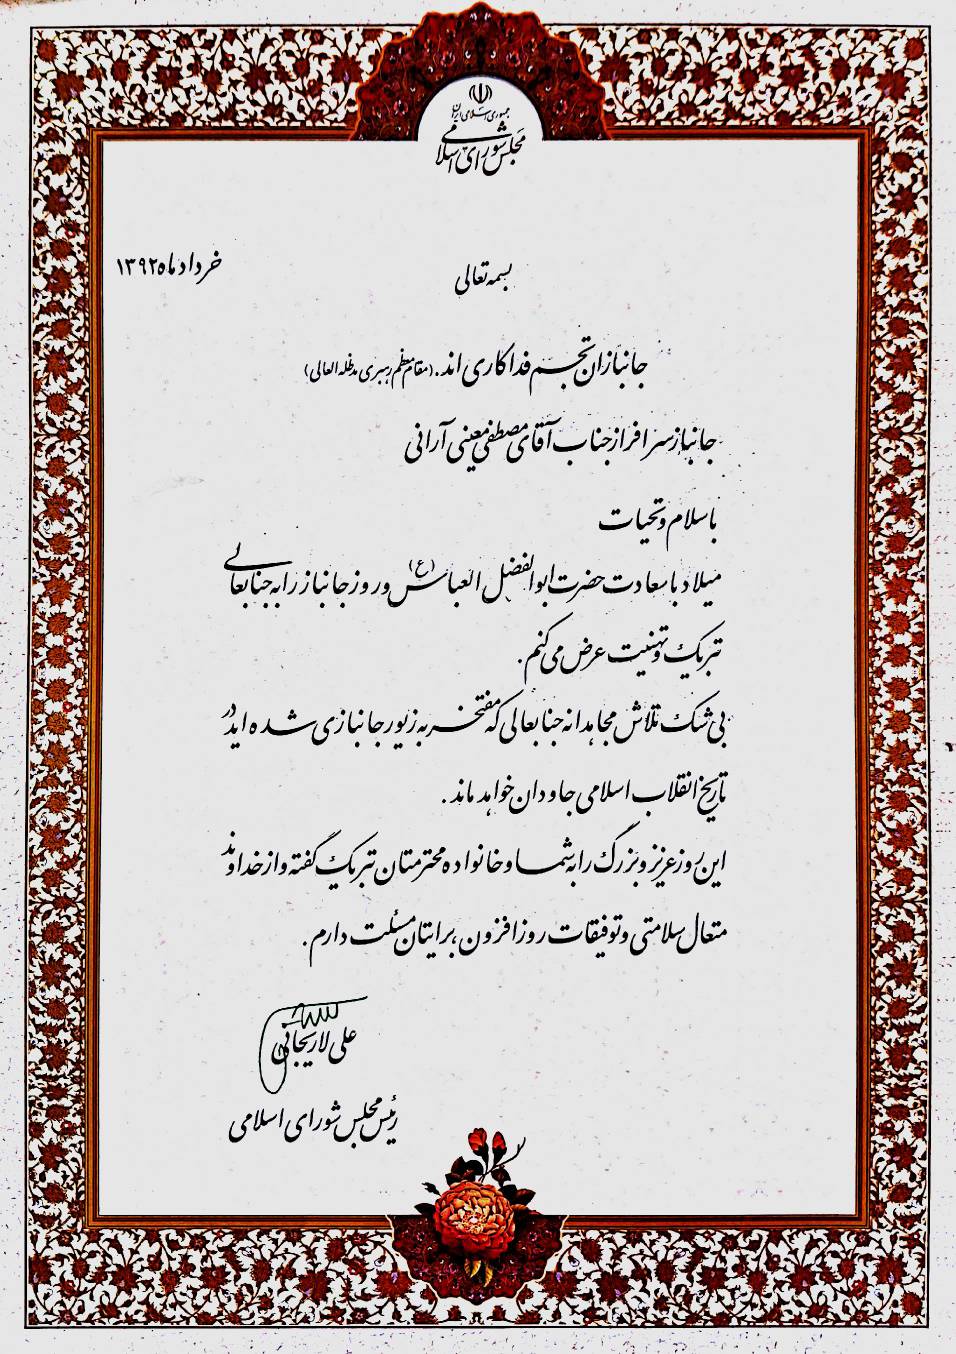 جمهوری اسلامی ایران
مجلس شورای اسلامی
خرداد ماه ۱۳۹۲
بسمه تعالی
جانبازان تجسم فداکاری اند. (مقام معظم رهبری مدظله العالی)
جانباز سرافراز جناب آقای مصطفی معینی آرانی
با سلام و تحیات
میلاد با سعادت حضرت ابوالفضل العباس (ع) و روز جانباز را به جنابعالی
تبریک و تهنیت عرض می کنم.
بی شک تلاش مجاهدانه جنابعالی که مفتخر به زیور جانبازی شده اید در
تاریخ انقلاب اسلامی جاودان خواهد ماند.
این روز عزیز و بزرگ را به شما و خانواده محترمتان تبریک گفته و از خداوند
متعال سلامتی و توفیقات روز افزون برایتان مسئلت دارم.
علی لاریجانی
رئیس مجلس شورای اسلامی